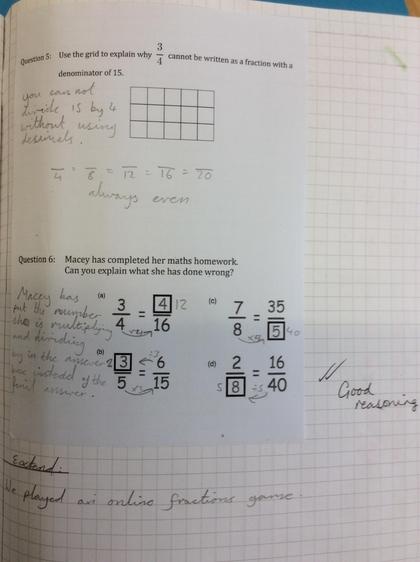 Question 5: Use the grid to explain why 3/4 cannot be written as a fraction with a
denominator of 15.
you can not
divide 15 by 4
without using
desimels.
4 = 8 = 12 = 16 = 20
always even
Question 6: Macey has completed her maths homework.
Can you explain what she has done wrong?
Macey has
put the number
she is multiplying
and dividing
by in the answer
box instead of the
final answer.
(a) 3/4 = 4/16 12
(c) 7/8 = 35/5 40
(b) 3/5 = 6/15 2
(d) 2/8 = 16/40 5
Good
reasoning
Extend:
We played an online fractions game.